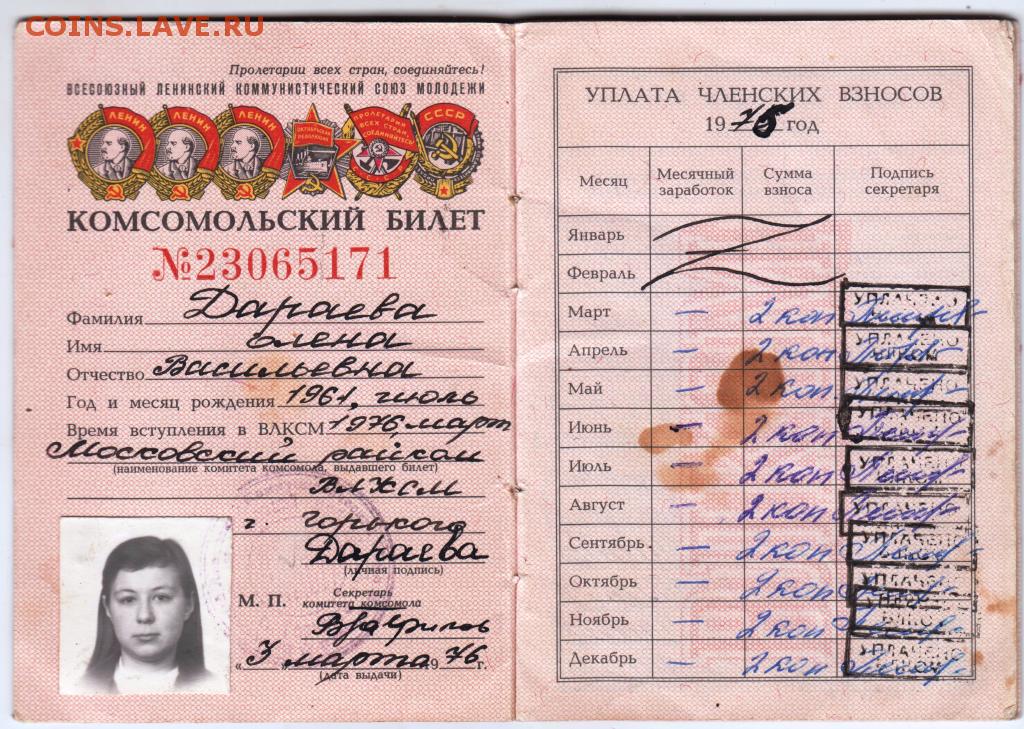 COINS.LAVE.RU
Пролетарии всех стран, соединяйтесь!
ВСЕСОЮЗНЫЙ ЛЕНИНСКИЙ КОММУНИСТИЧЕСКИЙ СОЮЗ МОЛОДЕЖИ
ЛЕНИН ЛЕНИН ЛЕНИН ОКТЯБРЬСКАЯ РЕВОЛЮЦИЯ ПРОЛЕТАРИИ ВСЕХ СТРАН, СОЕДИНЯЙТЕСЬ! СССР
КОМСОМОЛЬСКИЙ БИЛЕТ
№23065171
Фамилия Дараева
Имя Елена
Отчество Васильевна
Год и месяц рождения 1961, июль
Время вступления в ВЛКСМ 1976 март
Московский райком
(наименование комитета комсомола, выдавшего билет)
ВЛКСМ
г. Горького
Дараева
(личная подпись)
М. П.
Секретарь
комитета комсомола
"3" марта 1976 г.
(дата выдачи)
УПЛАТА ЧЛЕНСКИХ ВЗНОСОВ
1976 год
Месяц Месячный заработок Сумма взноса Подпись секретаря
Январь
Февраль
Март – 2 коп УПЛАЧЕНО
Апрель – 2 коп УПЛАЧЕНО
Май – 2 коп УПЛАЧЕНО
Июнь – 2 коп УПЛАЧЕНО
Июль – 2 коп УПЛАЧЕНО
Август – 2 коп УПЛАЧЕНО
Сентябрь – 2 коп УПЛАЧЕНО
Октябрь – 2 коп УПЛАЧЕНО
Ноябрь – 2 коп
Декабрь – 2 коп УПЛАЧЕНО